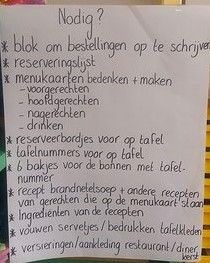 Nodig?
* blok om bestellingen op te schrijven
* reserveringslijst
* menukaarten bedenken + maken
- voorgerechten
- hoofdgerechten
- nagerechten
- drinken
* reserveerbordjes voor op tafel
* tafelnummers voor op tafel
* 6 bakjes voor de bonnen met tafel-
nummer
* recept brandnetelsoep + andere recepten
van gerechten die op de menukaart staan
* Ingredienten van de recepten
* vouwen servetjes / bedrukken tafelkleden
* versieringen/aankleding restaurant / diner
kerst